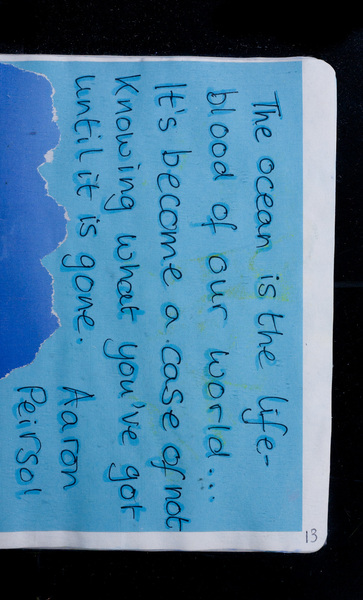 The ocean is the life-
blood of our world...
It's become a case of not
Knowing what you've got
until it is gone. Aaron
Peirsol
13